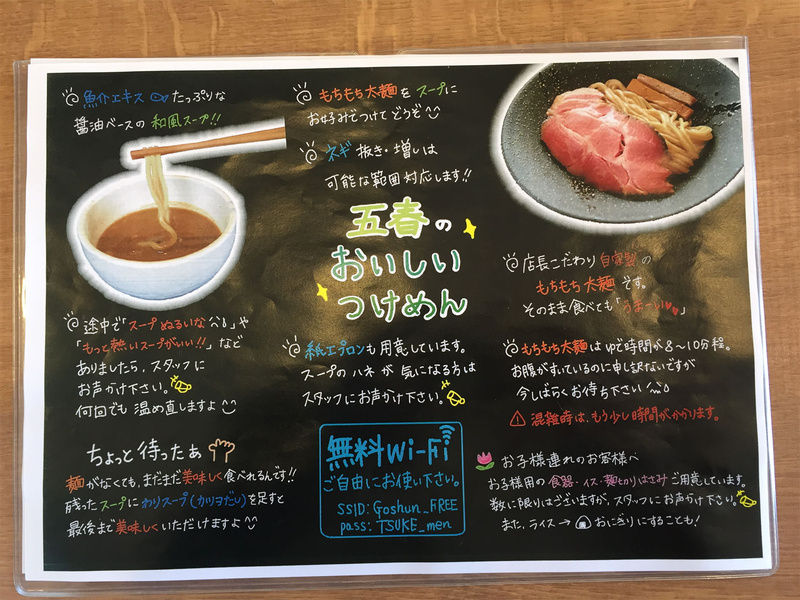 魚介エキス たっぷりな
醤油ベースの 和風スープ!!
もちもち太麺を スープに
お好みでつけて どうぞ
ネギ 抜き・増しは
可能な範囲対応します!!
五春の
おいしい
つけめん
店長こだわり 自家製の
もちもち太麺 です。
そのまま食べても「うまーい♥♥」
途中で「スープ ぬるいな」や
「もっと熱いスープがいい!!」など
ありましたら、スタッフに
お声かけ下さい。
何回でも 温め直しますよ
紙エプロンも用意しています。
スープの ハネ が 気になる方は
スタッフにお声かけ下さい。
もちもち太麺は ゆで時間が 8〜10分程。
お腹がすいているのに申し訳ないですが
今しばらくお待ち下さい
混雑時は、もう少し時間がかかります。
ちょっと 待ったぁ
麺がなくても、まだまだ美味しく食べれるんです!!
残ったスープにわりスープ(カツオだし)を足すと
最後まで美味しくいただけますよ
無料Wi-Fi
ご自由にお使い下さい。
SSID: Goshun_FREE
pass: TSUKE_men
お子様連れのお客様へ
お子様用の 食器・イス・麺切りはさみ ご用意しています。
数に限りはございますが、スタッフにお声かけ下さい。
また、ライス → おにぎりにすることも!